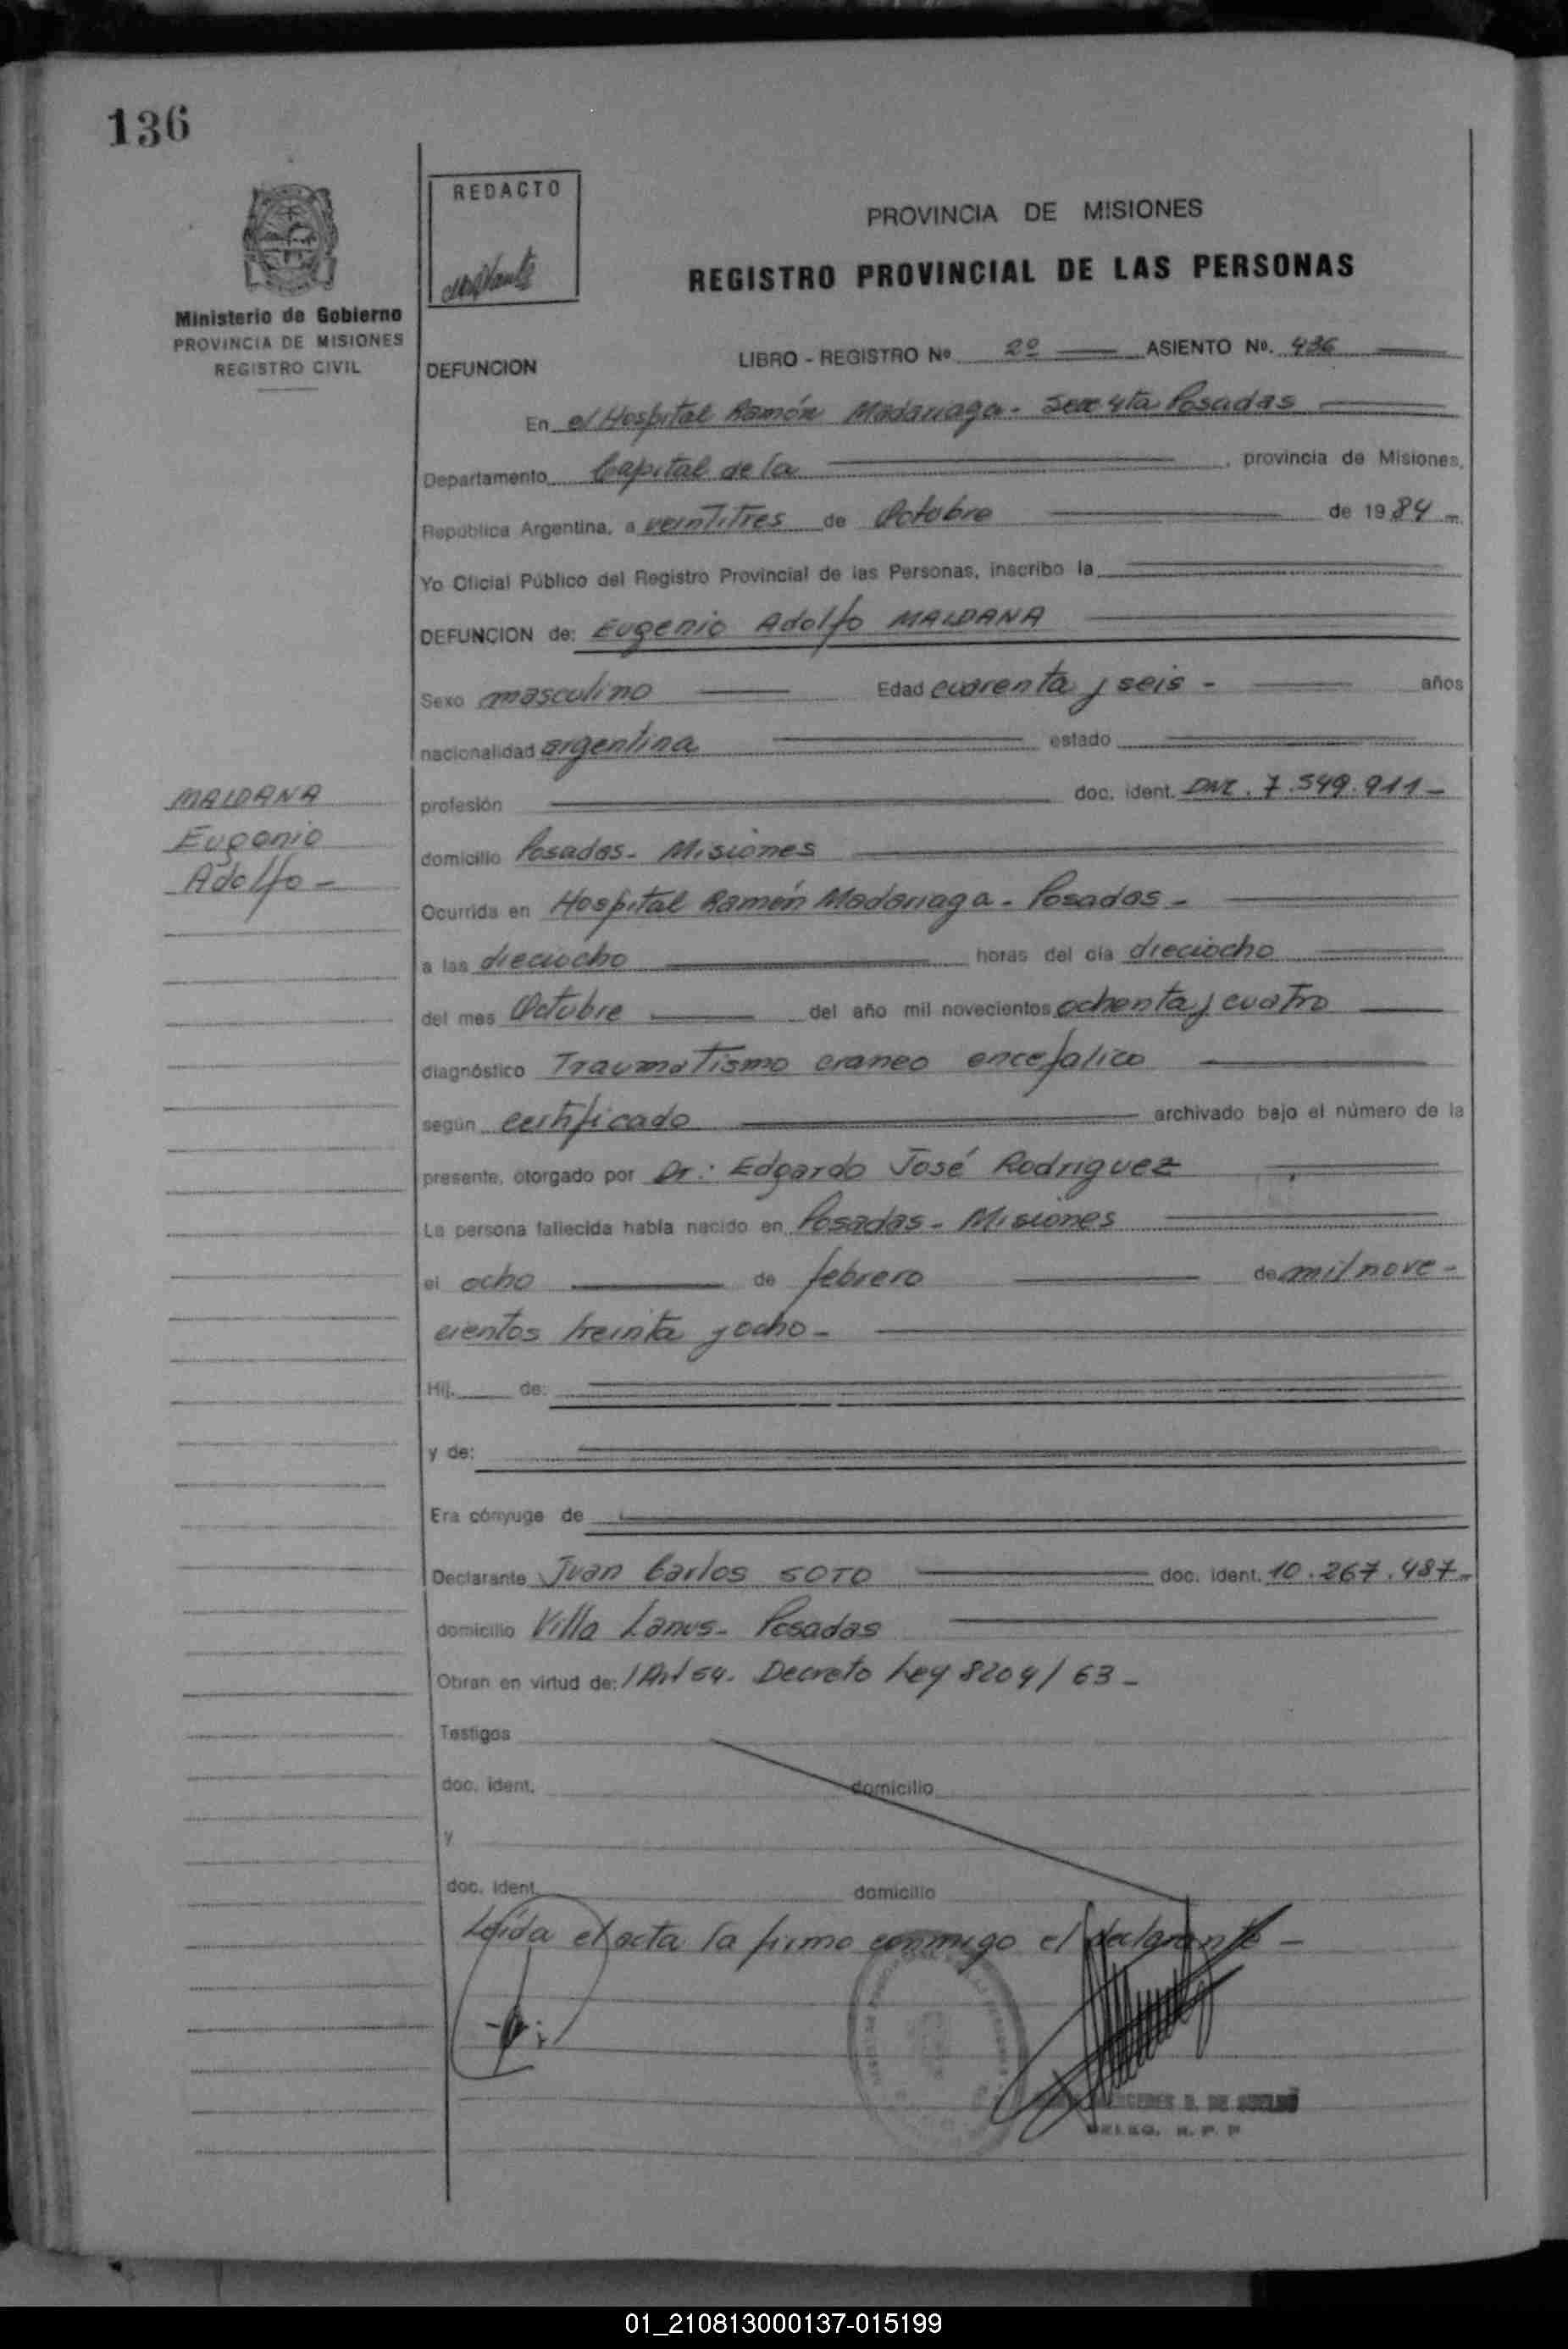 136
REDACTO
Ministerio de Gobierno
PROVINCIA DE MISIONES
REGISTRO CIVIL
PROVINCIA DE MISIONES
REGISTRO PROVINCIAL DE LAS PERSONAS
DEFUNCION
LIBRO - REGISTRO Nº 2º ASIENTO Nº. 436
En el Hospital Ramón Madariaga - Secc 4ta Posadas
Departamento Capital de la , provincia de Misiones,
República Argentina, a veintitres de Octubre de 1984 -
Yo Oficial Público del Registro Provincial de las Personas, inscribo la
DEFUNCION de: Eugenio Adolfo MALDANA
Sexo masculino Edad cuarenta y seis - años
nacionalidad argentina estado
profesión doc. ident. DNI. 7.549.911 -
MALDANA
Eugenio
Adolfo -
domicilio Posadas - Misiones
Ocurrida en Hospital Ramón Madariaga - Posadas -
a las dieciocho horas del día dieciocho
del mes Octubre del año mil novecientos ochenta y cuatro
diagnóstico Traumatismo craneo encefalico
según certificado archivado bajo el número de la
presente, otorgado por Dr: Edgardo José Rodriguez
La persona fallecida había nacido en Posadas - Misiones
el ocho de febrero de mil nove-
cientos treinta y ocho -
Hij. de:
y de:
Era cónyuge de
Declarante Juan Carlos SOTO doc. ident. 10.267.487 -
domicilio Villa Lanus - Posadas
Obran en virtud de: / Art 54. Decreto Ley 8204/63 -
Testigos
doc. ident. domicilio
y
doc. ident. domicilio
Leída el acta la firma conmigo el declarante -
DE
R. P. P
01_210813000137-015199